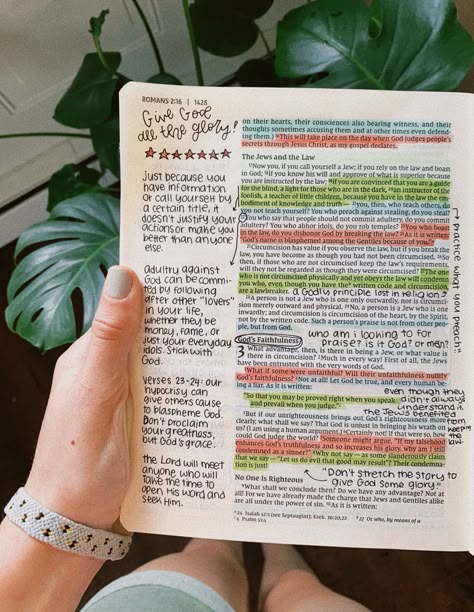 ROMANS 2:16 | 1428
Give God
all the glory!
Just because you
have information
or call yourself by
a certain title, it
doesn't justify your
actions or make you
better than anyone
else.
adultery against
God can be commit-
ted by following
after other "lovers"
in your life,
whether they be
money, fame, or
just your everyday
idols. Stick with
God.
Verses 23-24: our
hypocrisy can
give others cause
to blaspheme God.
Don't proclaim
your greatness,
but God's grace.
the Lord will meet
anyone who will
take the time to
open His word and
seek Him.
on their hearts, their consciences also bearing witness, and their
thoughts sometimes accusing them and at other times even defend-
ing them.) 16This will take place on the day when God judges people's
secrets through Jesus Christ, as my gospel declares.
The Jews and the Law
17Now you, if you call yourself a Jew; if you rely on the law and boast
in God; 18if you know his will and approve of what is superior because
you are instructed by the law; 19if you are convinced that you are a guide
for the blind, a light for those who are in the dark, 20an instructor of the
foolish, a teacher of little children, because you have in the law the em-
bodiment of knowledge and truth— 21you, then, who teach others, do
you not teach yourself? You who preach against stealing, do you steal?
22You who say that people should not commit adultery, do you commit
adultery? You who abhor idols, do you rob temples? 23You who boast
in the law, do you dishonor God by breaking the law? 24As it is written:
"God's name is blasphemed among the Gentiles because of you."
25Circumcision has value if you observe the law, but if you break the
law, you have become as though you had not been circumcised. 26So
then, if those who are not circumcised keep the law's requirements,
will they not be regarded as though they were circumcised? 27The one
who is not circumcised physically and yet obeys the law will condemn
you who, even though you have the written code and circumcision,
are a lawbreaker. a Godly principle lost in religion?
28A person is not a Jew who is one only outwardly, nor is circumci-
sion merely outward and physical. 29No, a person is a Jew who is one
inwardly; and circumcision is circumcision of the heart, by the Spirit,
not by the written code. Such a person's praise is not from other peo-
ple, but from God.
who am i looking to for
praise? is it God? or men?
God's Faithfulness
3 What advantage, then, is there in being a Jew, or what value is
there in circumcision? 2Much in every way! First of all, the Jews
have been entrusted with the very words of God.
3What if some were unfaithful? Will their unfaithfulness nullify
God's faithfulness? 4Not at all! Let God be true, and every human be-
ing a liar. As it is written:
"So that you may be proved right when you speak
and prevail when you judge."
even though they
didn't always
understand it,
the Jews benefited
5But if our unrighteousness brings out God's righteousness more
clearly, what shall we say? That God is unjust in bringing his wrath on
us? (I am using a human argument.) 6Certainly not! If that were so, how
could God judge the world? 7Someone might argue, "If my falsehood
enhances God's truthfulness and so increases his glory, why am I still
condemned as a sinner?" 8Why not say—as some slanderously claim
that we say—"Let us do evil that good may result"? Their condemna-
tion is just!
"Don't stretch the story to
give God some glory"
No One Is Righteous
9What shall we conclude then? Do we have any advantage? Not at
all! For we have already made the charge that Jews and Gentiles alike
are all under the power of sin. 10As it is written:
"practice what you preach"